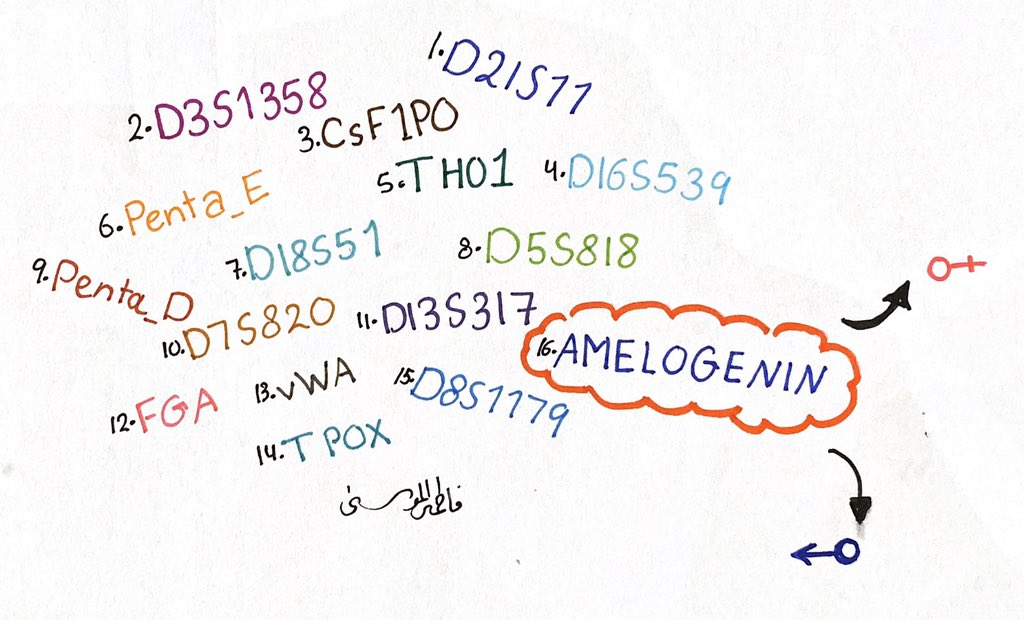 1. D21S11
2. D3S1358
3. CsF1PO
4. D16S539
5. TH01
6. Penta_E
7. D18S51
8. D5S818
9. Penta_D
10. D7S820
11. D13S317
12. FGA
13. vWA
14. TPOX
15. D8S1179
16. AMELOGENIN